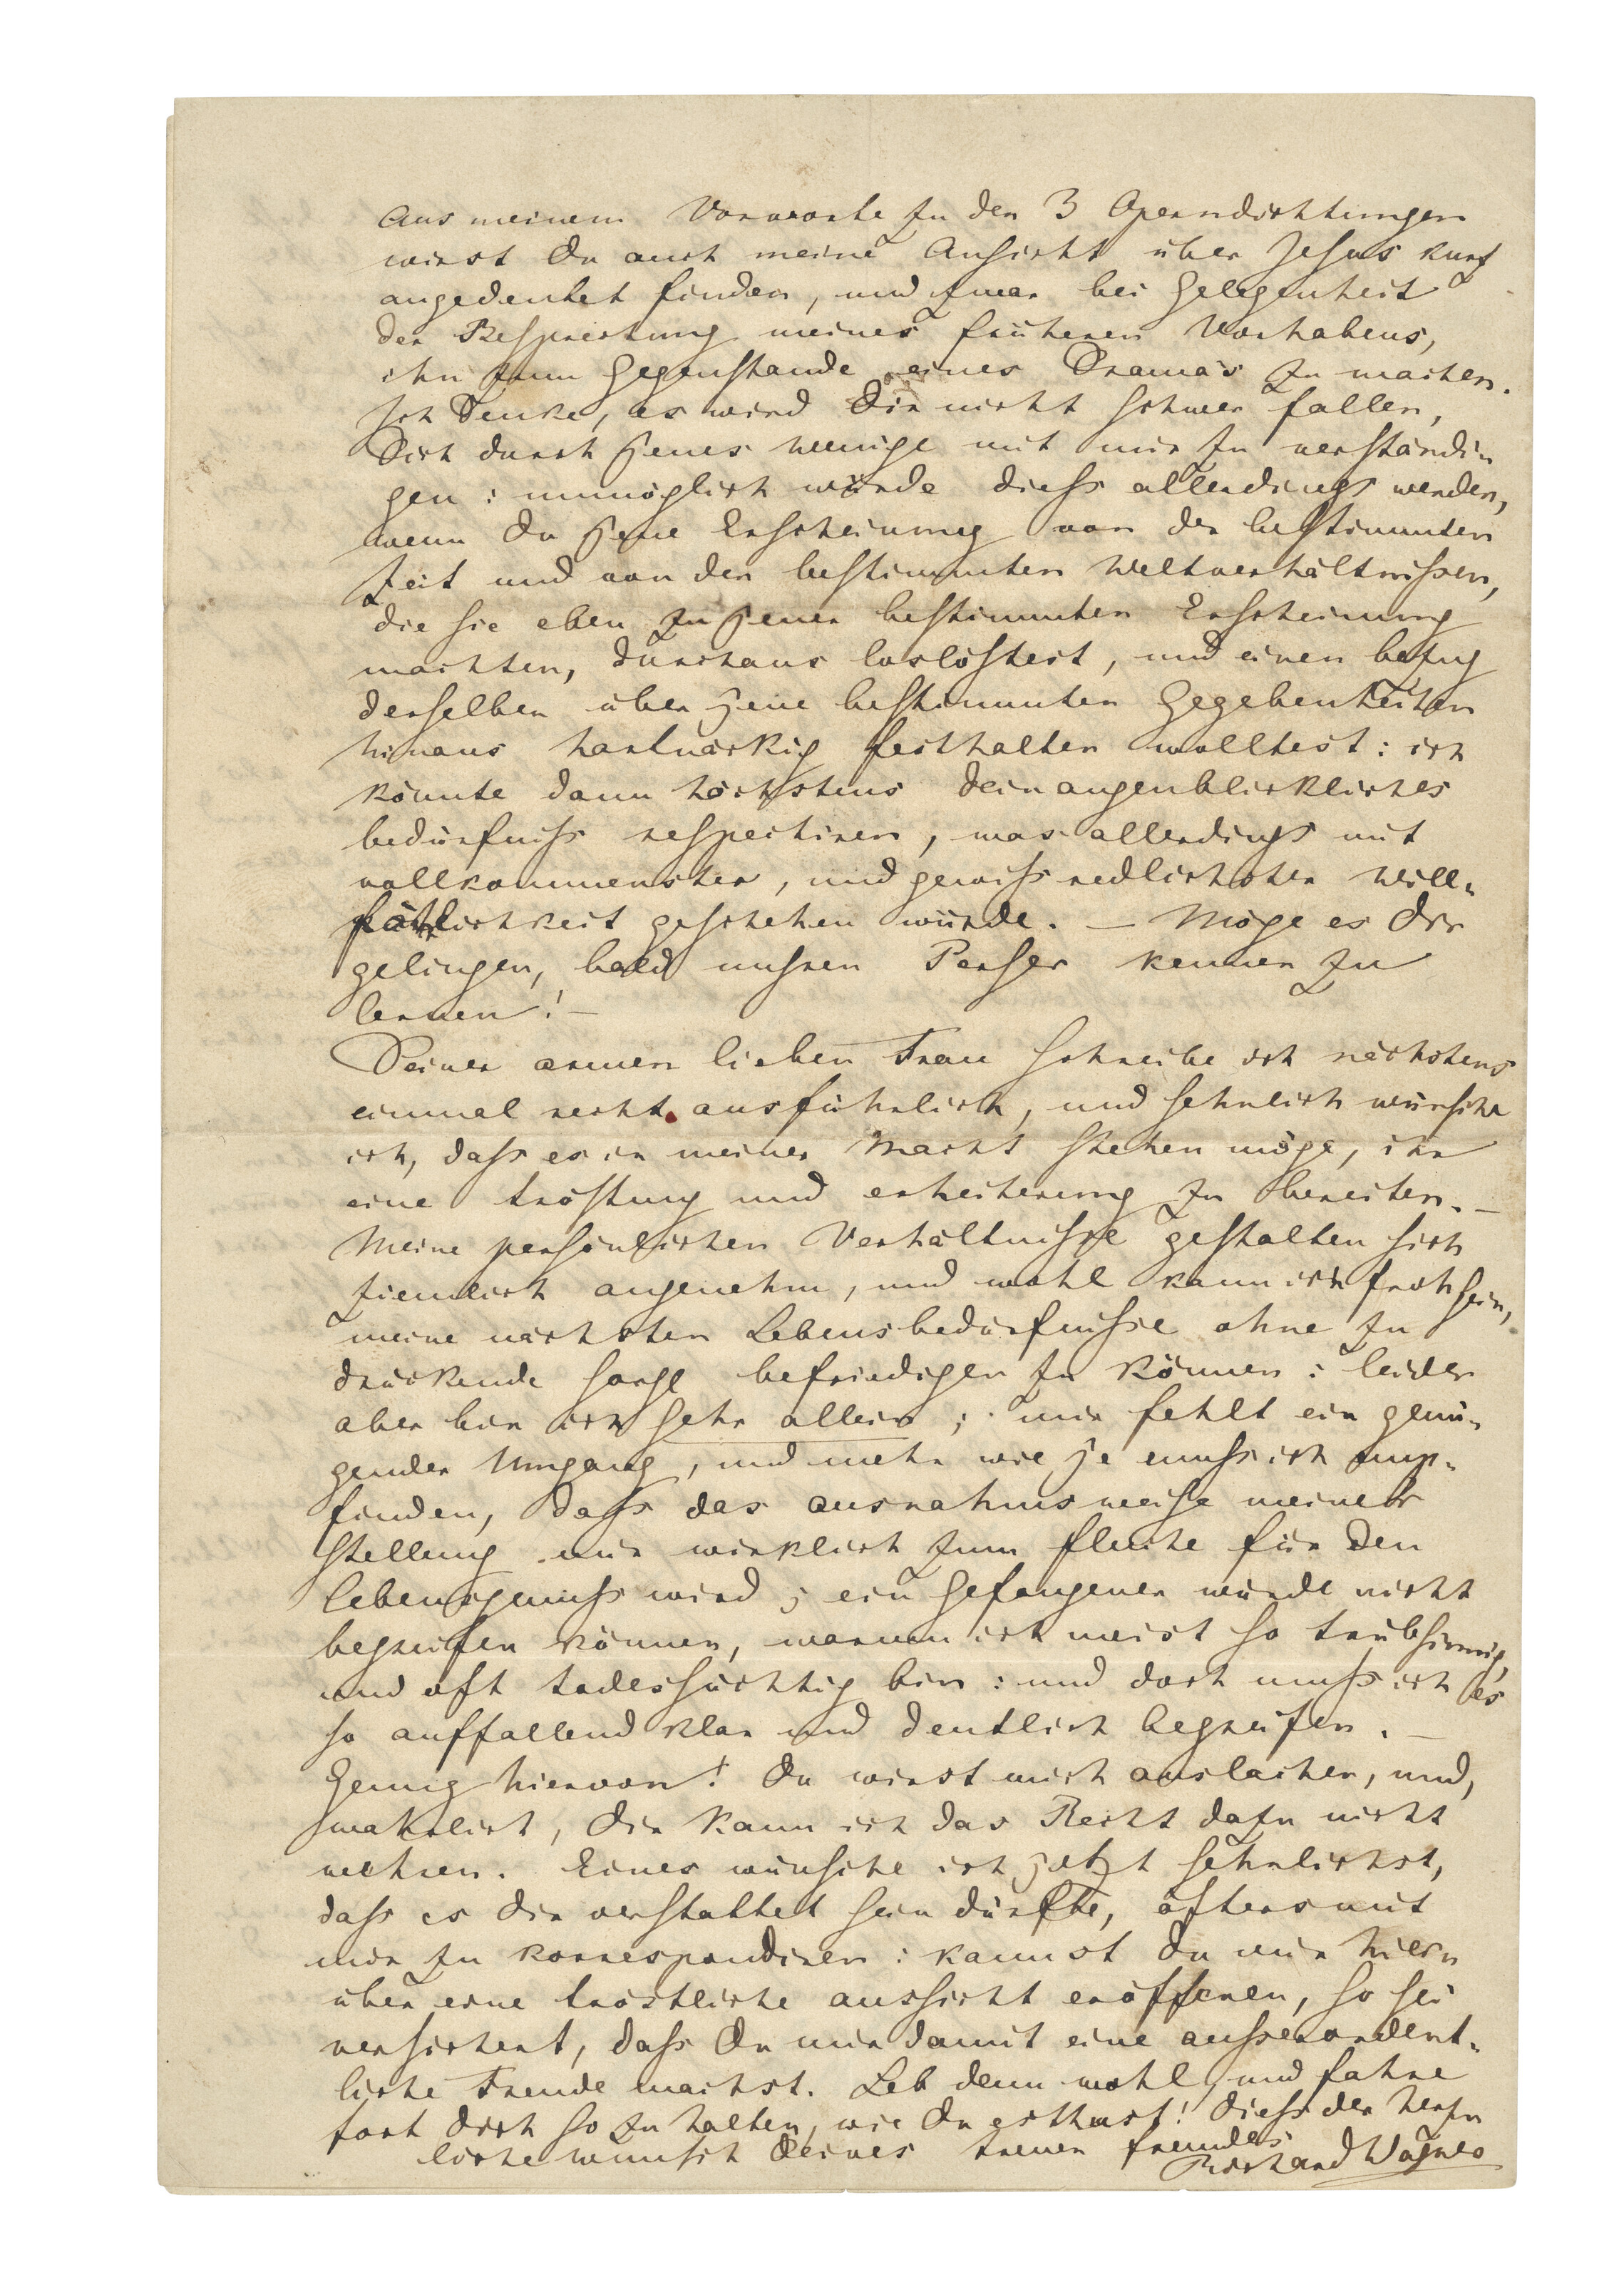 Aus meinem Vorworte zu den 3 Operndichtungen
wirst du auch meine Ansicht über Jesus kurz
angedeutet finden, und zwar bei Gelegenheit
der Besprechung meines früheren Vorhabens,
ihn zum Gegenstande eines Drama's zu machen.
Ich denke, es wird Dir nicht schwer fallen,
Dich durch jenes wenige mit mir zu verständi-
gen: unmöglich würde diess allerdings werden,
wenn du jene Erscheinung von der bestimmten
Zeit und von den bestimmten Weltverhältnissen,
die sie eben zu jener bestimmten Erscheinung
machten, durchaus loslöstest, und einen bezug
derselben über jene bestimmten Gegebenheiten
hinaus hartnäckig festhalten wolltest: ich
könnte dann höchstens dein augenblickliches
bedürfniss respectiren, was allerdings mit
vollkommenster, und gewiss redlichster Will-
fährlichkeit geschehen würde. — Möge es dir
gelingen, bald unsren Perser kennen zu
lernen! —
Deiner armen lieben Frau schreibe ich nächstens
einmal recht ausführlich, und sehnlich wünsche
ich, dass es in meiner Macht stehen möge, ihr
eine tröstung und erheiterung zu bereiten. —
Meine persönlichen Verhältnisse gestalten sich
ziemlich angenehm, und wohl kann ich froh sein,
meine nächsten Lebensbedürfnisse ohne zu
drückende sorge befriedigen zu können: leider
aber bin ich sehr allein; mir fehlt ein genü-
gender Umgang, und mehr wie je muss ich emp-
finden, dass das ausnahmsweise meiner
stellung mir wirklich zum fluche für den
lebensgenuss wird; ein Gefangener würde nicht
begreifen können, warum ich meist so trübsinnig,
und oft todessüchtig bin: und doch muss ich es
so auffallend klar und deutlich begreifen. —
Genug hiervon! du wirst mich auslachen, und,
wahrlich, dir kann ich das Recht dazu nicht
wehren. Eines wünsche ich jetzt sehnlichst,
dass es dir verstattet sein dürfte, öfters mit
mir zu korrespondiren: kannst du mir hier-
über eine tröstliche aussicht eröffnen, so sei
versichert, dass du mir damit eine ausserordent-
liche Freude machst. Leb denn wohl, und fahre
fort dich so zu halten, wie du es thust! diess der herz-
liche wunsch deines treuen freundes
Richard Wagner